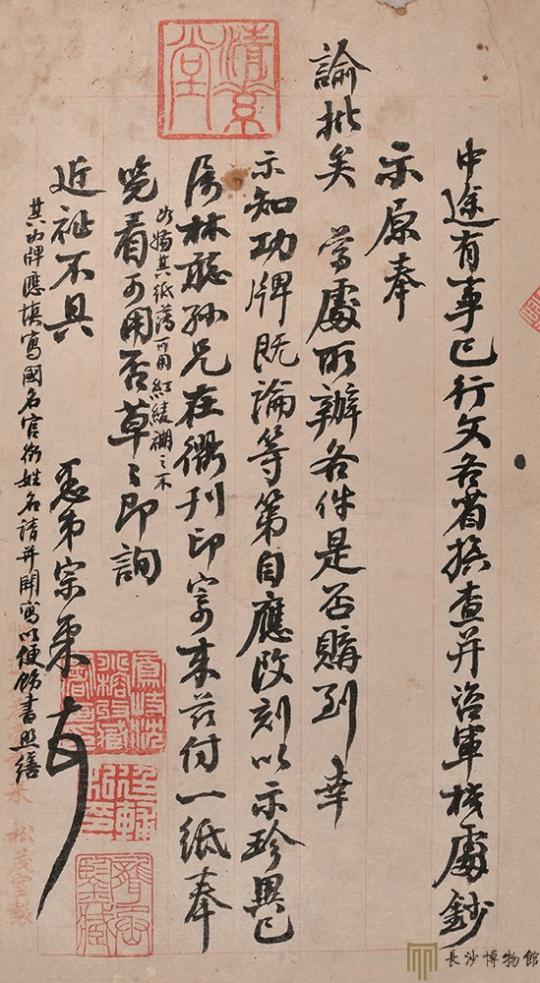 中途有事已行文各省撫查并咨軍機處鈔
示原奉
諭批矣 尊處所辦各件是否購到 幸
示知功牌既論等第自應改刻以示珍異已
屬林聽孫兄在衙刊印寄來茲付一紙奉
覽看可用否草々即詢
如嫌其紙薄可用紅綾裱之不
近祉不具 愚弟宗棠頓
其功牌應填寫國名官銜姓名請并開寫以便飭書照繕
清芬堂
松茂室製
長沙博物館